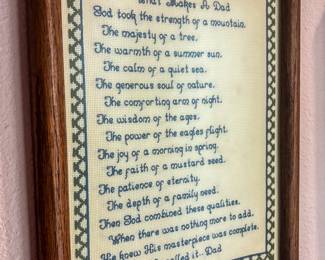 What Makes A Dad
God took the strength of a mountain.
The majesty of a tree.
The warmth of a summer sun.
The calm of a quiet sea.
The generous soul of nature.
The comforting arm of night.
The wisdom of the ages.
The power of the eagles flight.
The joy of a morning in spring.
The faith of a mustard seed.
The patience of eternity.
The depth of a family need.
Then God combined these qualities.
When there was nothing more to add.
He knew His masterpiece was complete.
called it...Dad